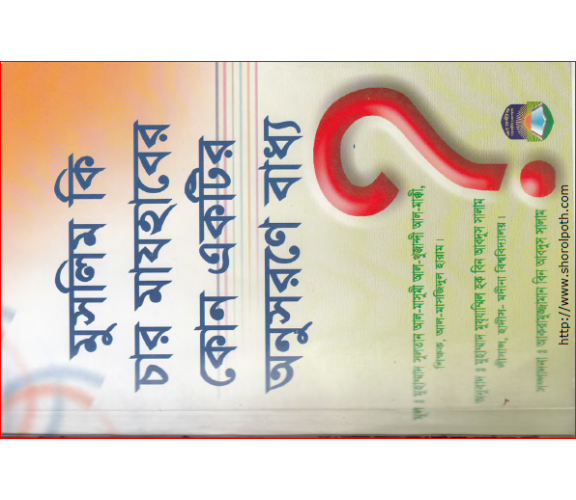 মুসলিম কি
চার মাযহাবের
কোন একটির
অনুসরণে বাধ্য
?
মূল ঃ মুহাম্মাদ সুলতান আল-মাসুমী আল-খুজান্দী আল-মাক্কী,
শিক্ষক, আল-মাসজিদুল হারাম।
অনুবাদ ঃ মুহাম্মাদ মুযাম্মিল হক বিন আবদুস সালাম
লীসান্স, হাদীস- মদীনা বিশ্ববিদ্যালয়।
সম্পাদনা ঃ আকরামুজ্জামান বিন আবদুস সালাম
http://www.shorolpoth.com